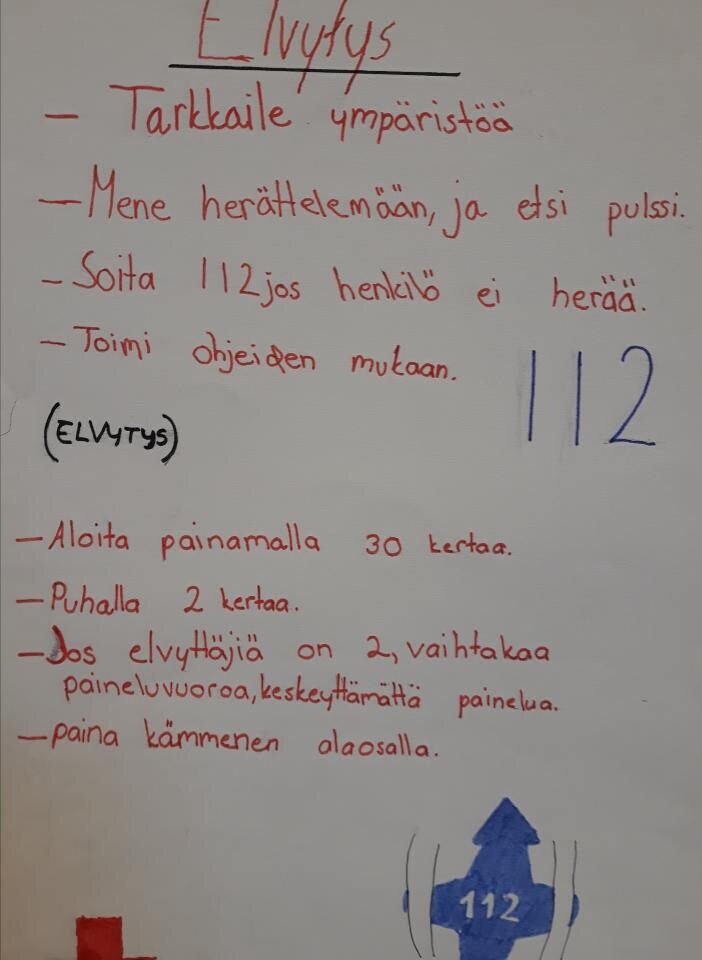 Elvytys
- Tarkkaile ympäristöä
- Mene herättelemään, ja etsi pulssi.
- Soita 112 jos henkilö ei herää.
- Toimi ohjeiden mukaan.
112
(ELVYTYS)
- Aloita painamalla 30 kertaa.
- Puhalla 2 kertaa.
- Jos elvyttäjiä on 2, vaihtakaa
paineluvuoroa, keskeyttämättä painelua.
- paina kämmenen alaosalla.
112